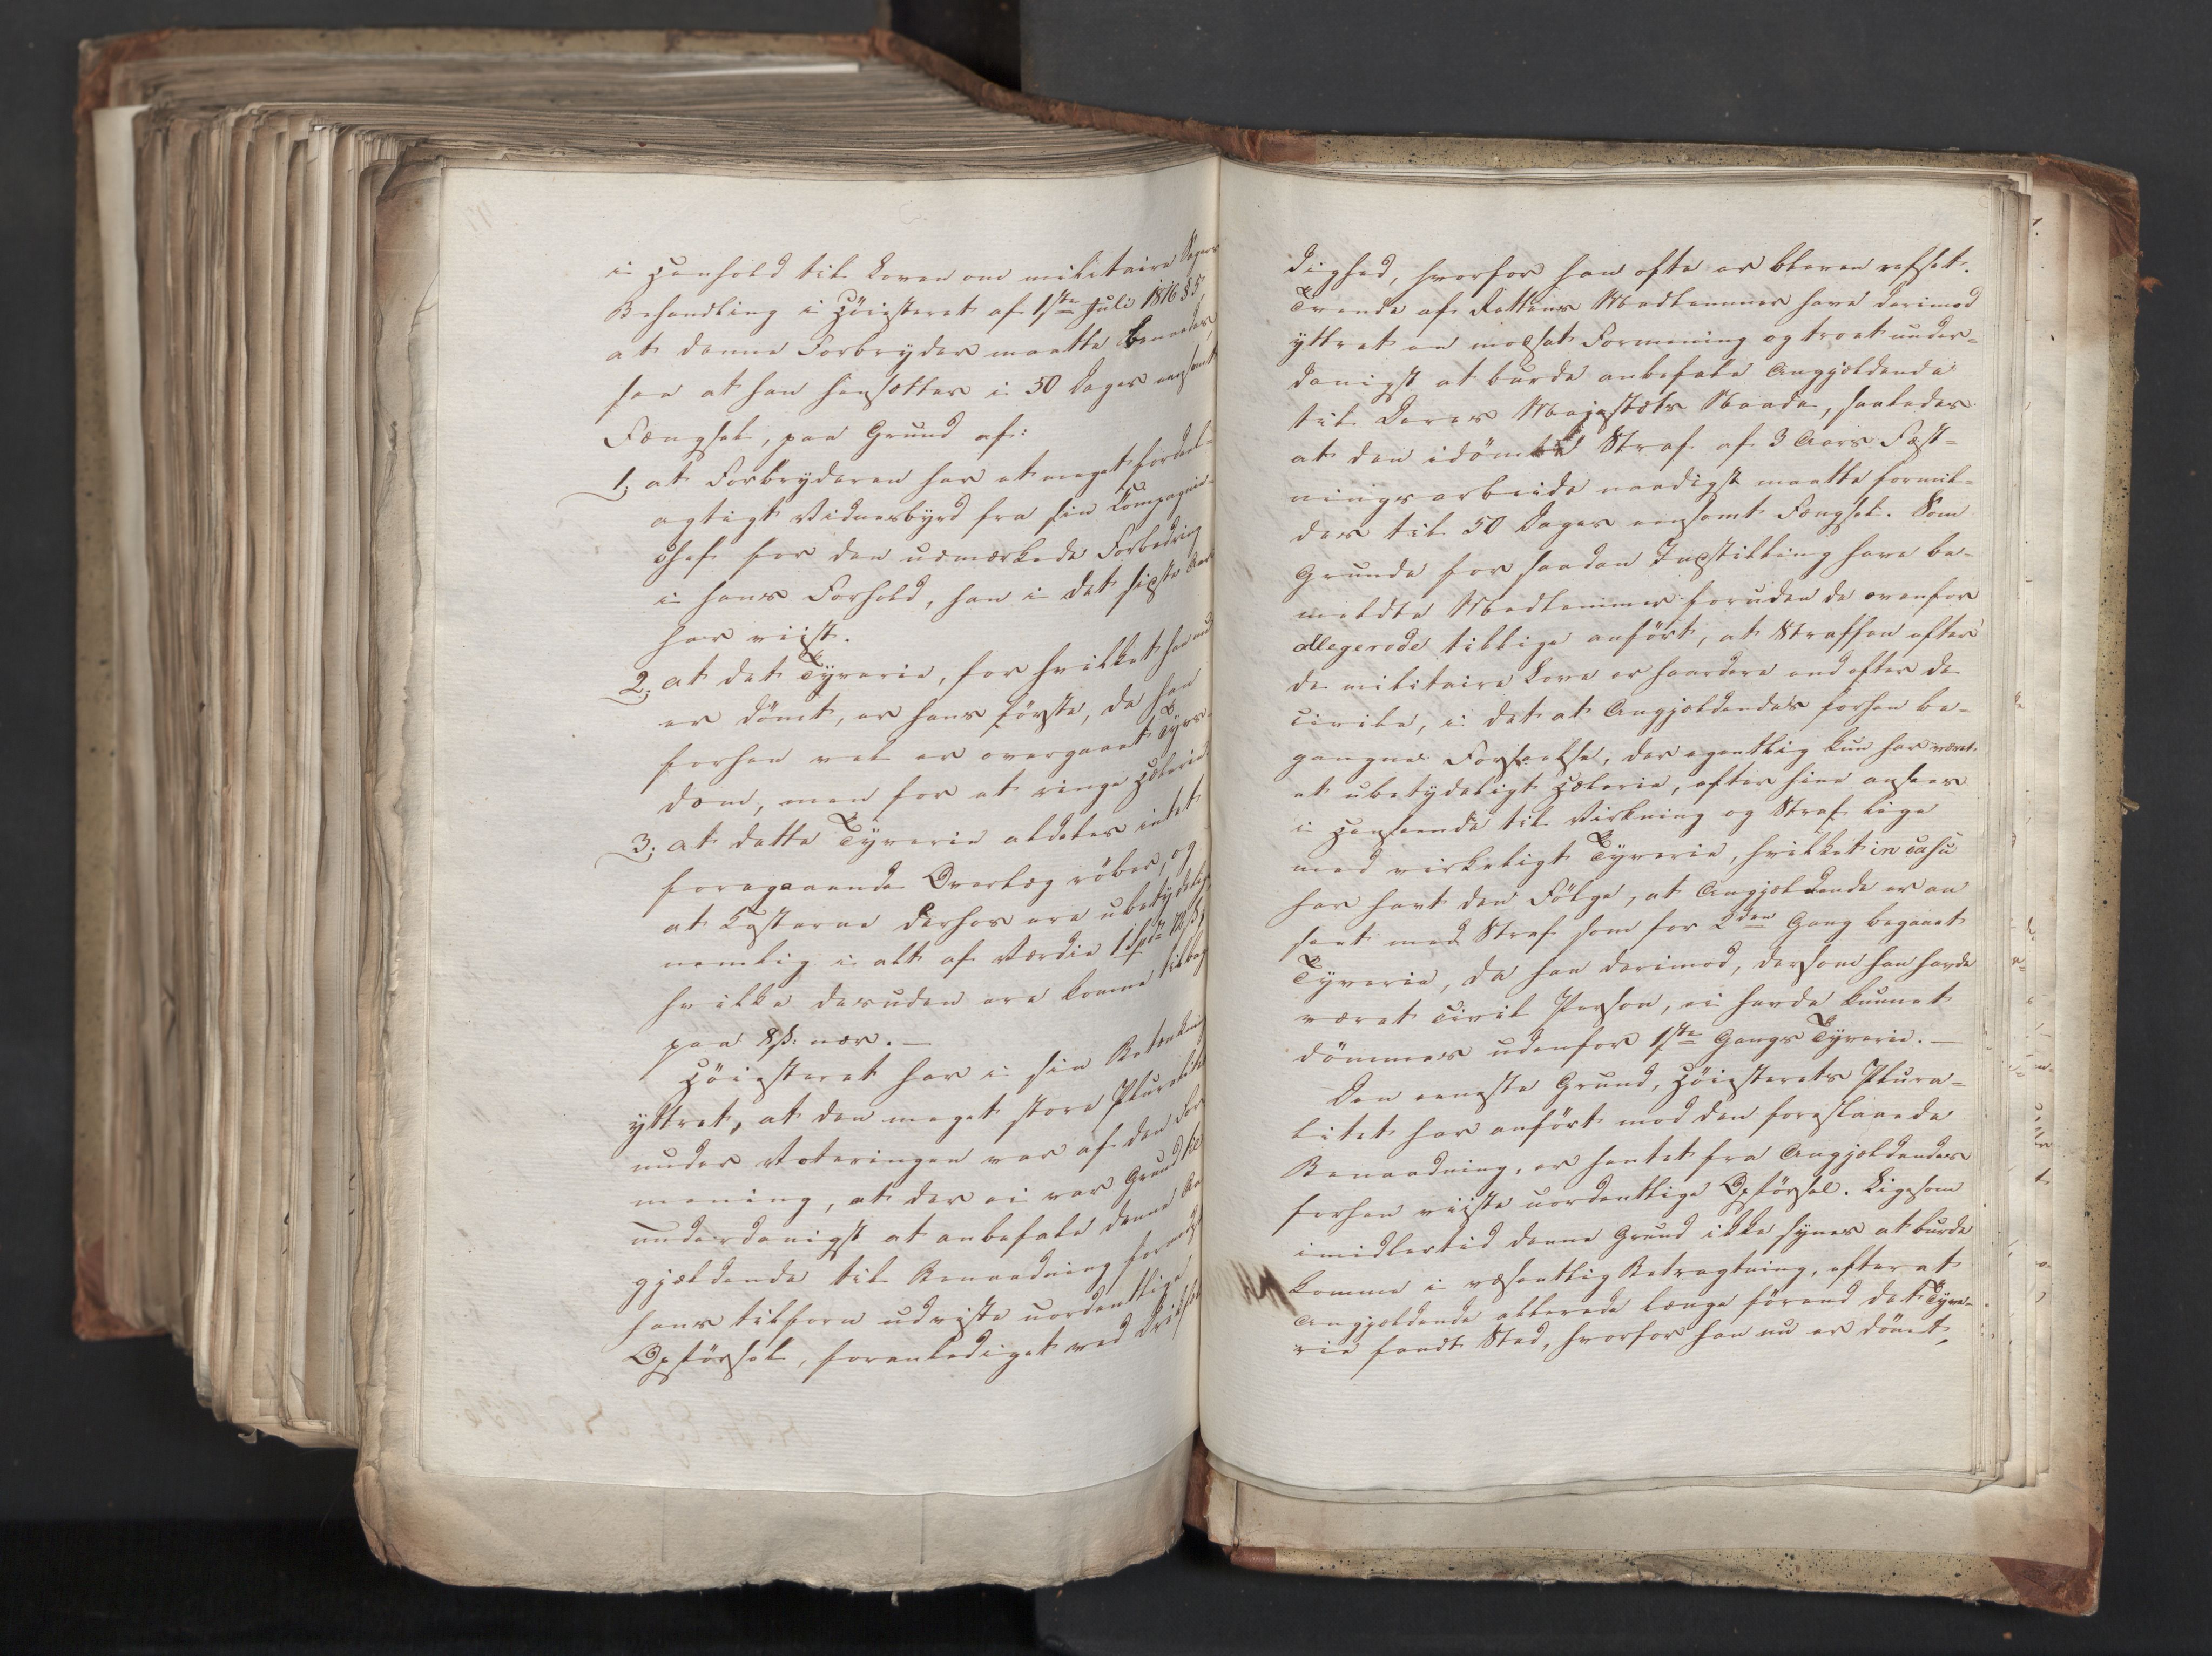 i Henhold til Loven om militaire Sagers
Behandling i Höiesteret af 1ste Juli 1816 § 5,
at denne Forbryder maatte benaades
saa at han hensættes i 50 Dages eensomt
Fængsel, paa Grund af:
1, at Forbryderen har et meget fordeel-
agtigt Vidnesbyrd fra sin Compagnie-
chef for den udmærkede Forbedring
i hans Forhold, han i det sidste Aar
har viist.
2, at det Tyverie, for hvilket han nu
er dömt, er hans förste, da han
forhen vel er overgaaet Tyvs-
dom, men for et ringe Hælerie
3, at dette Tyverie aldeles intet
foregaaende Overlæg röber, og
at Kosterne derhos ere ubetydelige
nemlig i alt af Værdie 1 Spd 72 ß,
hvilke desuden ere komne tilbage
paa 8 ß nær. —
Höiesteret har i sin Betænkning
yttret, at den meget store Pluralitet
under Voteringen var af den For-
mening, at der ei var Grund til
underdanigst at anbefale denne An-
gjældende til Benaadning formedelst
hans tilforn udviste uordentlige
Opförsel, foranlediget ved Drikfæl-
dighed, hvorfor han ofte er bleven refset.
Tvende af Rettens Medlemmer have derimod
yttret en modsat Formening og troet under-
danigst at burde anbefale Angjældende
til Deres Majestæts Naade, saaledes
at den idömte Straf af 3 Aars Fæst-
ningsarbeide naadigst maatte formil-
des til 50 Dages eensomt Fængsel. Som
Grunde for saadan Indstilling have be-
meldte Medlemmer foruden de ovenfor
allegerede tillige anfört, at Straffen efter
de militaire Love er haardere end efter de
civile, i det at Angjældendes forhen be-
gangne Forseelse, der egentlig kun har været
et ubetydeligt Hælerie, efter hine ansees
i Henseende til Virkning og Straf lige
med virkeligt Tyverie, hvilket in casu
har havt den Fölge, at Angjældende er an-
seet med Straf som for 2den Gang begaaet
Tyverie, da han derimod, dersom han havde
været civil Person, ei havde kunnet
dömmes udenfor 1ste Gangs Tyverie. —
Den eneste Grund, Höiesterets Plura-
litet har anfört mod den foreslaaede
Benaadning, er hentet fra Angjældendes
forhen viiste uordentlige Opförsel. Ligesom
imidlertid denne Grund ikke synes at burde
komme i væsentlig Betragtning, efterat
Angjældende allerede længe förend det Tyve-
rie fandt Sted, hvorfor han nu er dömt,